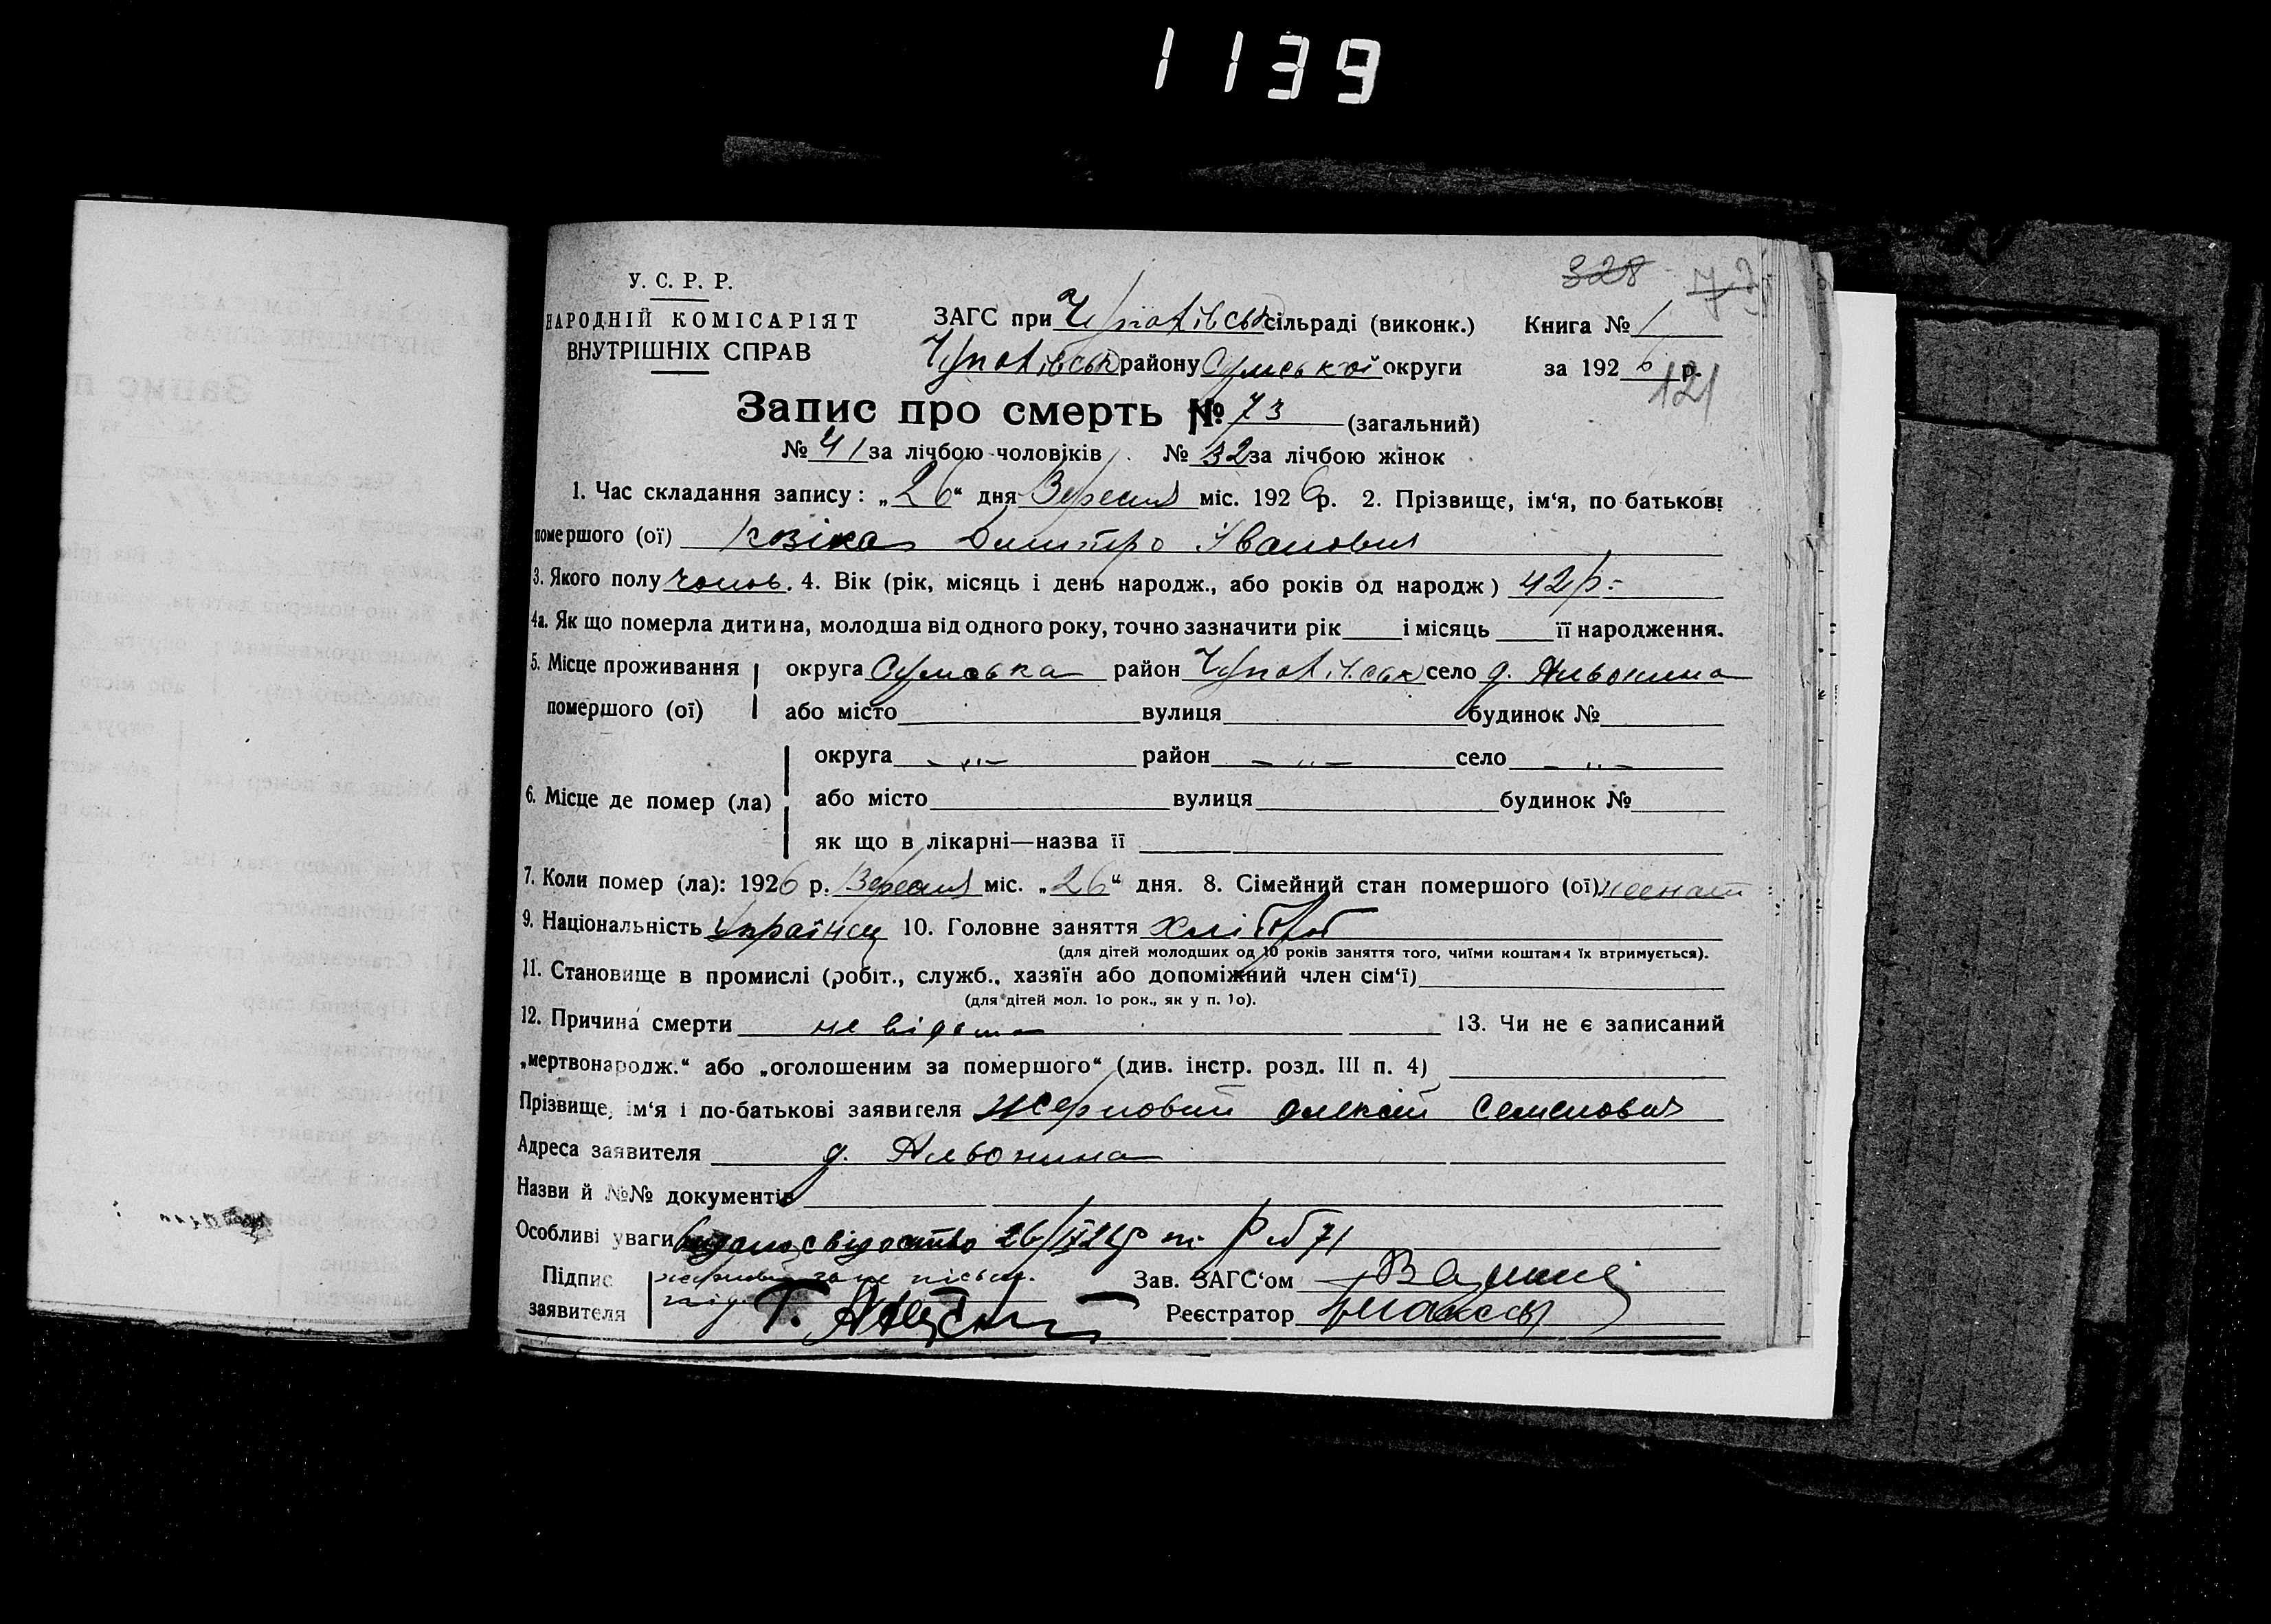 1139
328
У. С. Р. Р.
НАРОДНІЙ КОМІСАРІЯТ
ВНУТРІШНІХ СПРАВ
ЗАГС при сільраді (виконк.) Книга № 1
району Сумської округи за 1926 р.
121
Запис про смерть № 73 (загальний)
№ 41 за лічбою чоловіків № 32 за лічбою жінок
1. Час складання запису: „26“ дня Вересня міс. 1926 р. 2. Прізвище, ім‘я, по батькові
помершого (ої) Козіка Дмитро Іванович
3. Якого полу чолов. 4. Вік (рік, місяць і день народж., або років од народж) 42 р.
4а. Як що померла дитина, молодша від одного року, точно зазначити рік і місяць її народження.
5. Місце проживання округа Сумська район село д. Альвонина
помершого (ої) або місто вулиця будинок №
округа — „ — район — „ — село — „ —
6. Місце де помер (ла) або місто вулиця будинок №
як що в лікарні—назва її
7. Коли помер (ла): 1926 р. Вересня міс. „26“ дня. 8. Сімейний стан помершого (ої) женат
9. Національність Українец 10. Головне заняття Хлібороб
(для дітей молодших од 10 років заняття того, чиїми коштами їх втримується).
11. Становище в промислі (робіт., служб., хазяїн або допоміжний член сім‘ї)
(для дітей мол. 1о рок., як у п. 1о).
12. Причина смерти не відома 13. Чи не є записаний
„мертвонародж.“ або „оголошеним за помершого“ (див. інстр. розд. III п. 4)
Прізвище, ім‘я і по-батькові заявителя Жерновий Олексій Семенович
Адреса заявителя д. Альвонина
Назви й №№ документів
Особливі уваги видано свідоцтво 26/IX 26р № 71
Підпис Зав. ЗАГС‘ом
заявителя Реєстратор